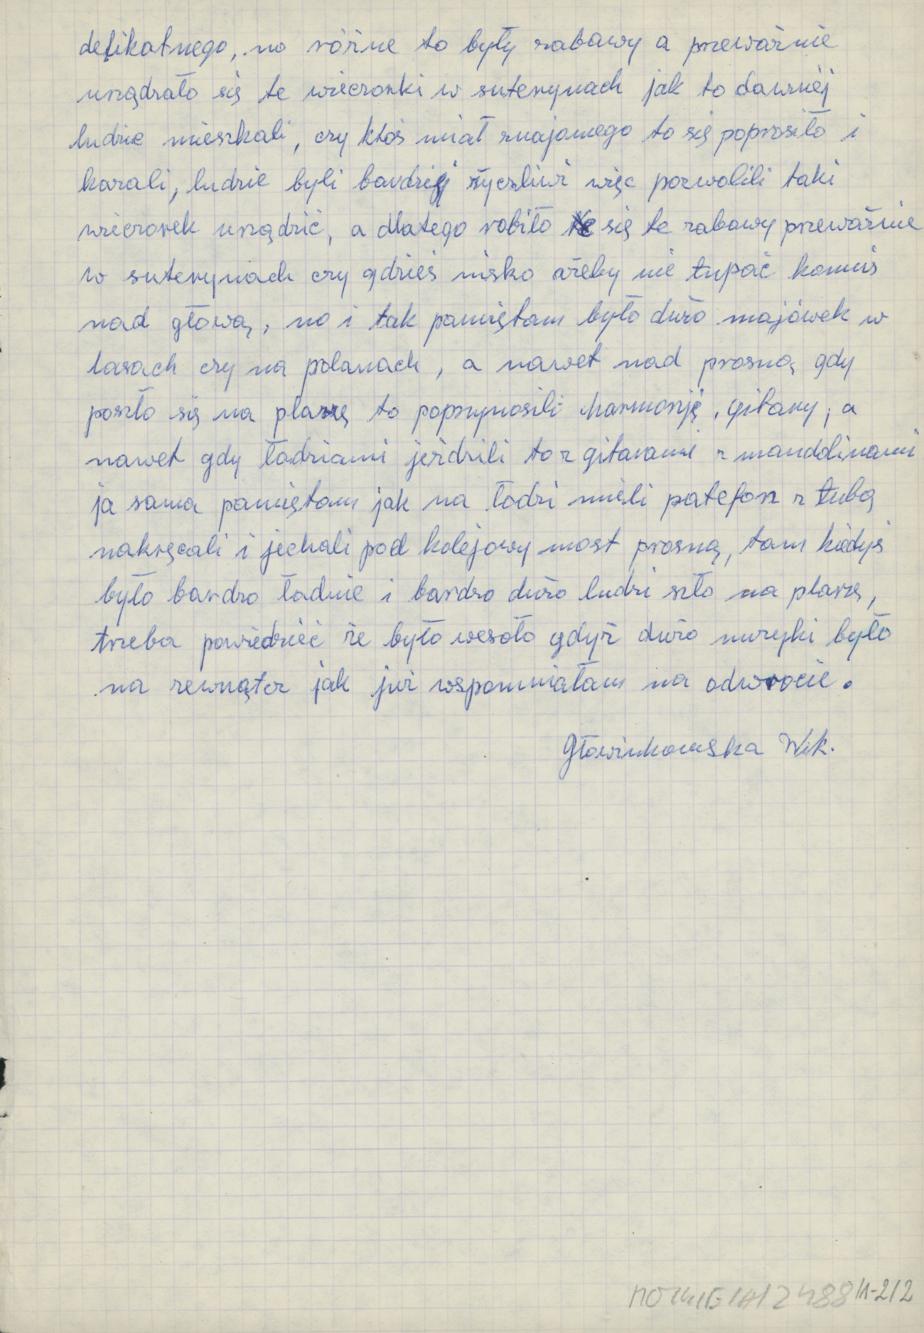 delikatnego, no różne to były zabawy a przeważnie
urządzało się te wieczorki w sutenynach jak to dawniej
ludzie mieszkali, czy ktoś miał znajomego to się poprosiło i
kazali, ludzie byli bardziej życzliwi więc pozwolili taki
wieczorek urządzić, a dlatego robiło się te zabawy przeważnie
w sutenynach czy gdzieś nisko ażeby nie tupać komuś
nad głową, no i tak pamiętam było dużo majówek w
lasach czy na polanach, a nawet nad prosną gdy
poszło się na plażę to poprzynosili harmonję, gitary, a
nawet gdy łodziami jeździli to z gitarami z mandolinami
ja sama pamiętam jak na łodzi mieli patefon z tubą
nakręcali i jechali pod kolejowy most prosną, tam kiedyś
było bardzo ładnie i bardzo dużo ludzi szło na plażę,
trzeba powiedzieć że było wesoło gdyż dużo muzyki było
na zewnątrz jak już wspomniałam na odwrocie.
Głowinkowska Wik.
2488/1-2/2